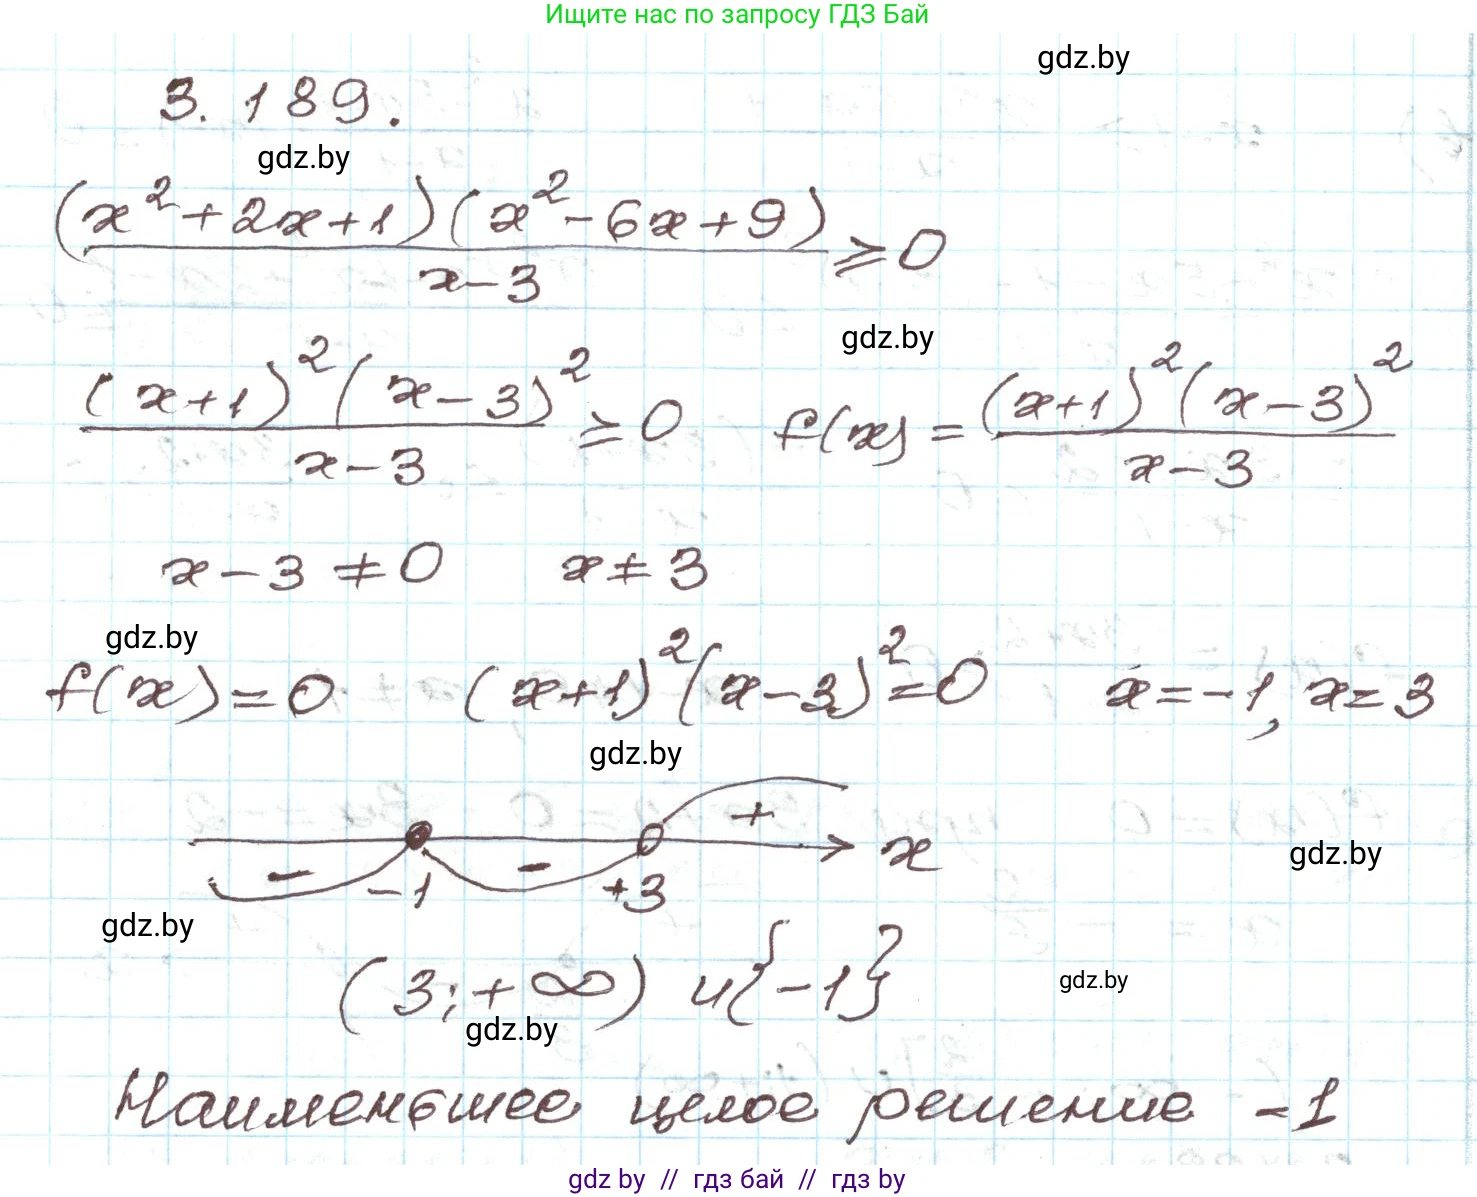 Ищите нас по запросу ГДЗ Бай
gdz.by
3.189.
gdz.by
(x² + 2x + 1)(x² - 6x + 9) / x - 3 ⩾ 0
gdz.by
(x+1)²(x-3)² / x-3 ⩾ 0 f(x) = (x+1)²(x-3)² / x-3
x - 3 ≠ 0 x ≠ 3
gdz.by
f(x) = 0 (x+1)²(x-3)² = 0 x = -1, x = 3
gdz.by
+
x
gdz.by
- -1 - +3
gdz.by
(3; +∞) и {-1}
gdz.by
gdz.by
Наименьшее целое решение -1
gdz.by // гдз бай // гдз by